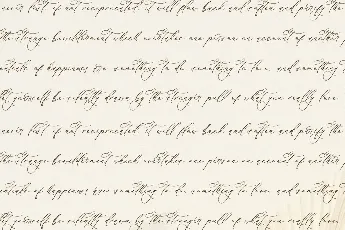 never lost if not reciprocated it will flow back and soften and purify the
the strange bewilderment which overtakes one person on account of another p
of happiness are something to do, something to love, and something
let yourself be silently drawn by the stronger pull of what you really love
never lost if not reciprocated it will flow back and soften and purify the
the strange bewilderment which overtakes one person on account of another p
of happiness are something to do, something to love, and something
let yourself be silently drawn by the stronger pull of what you really love